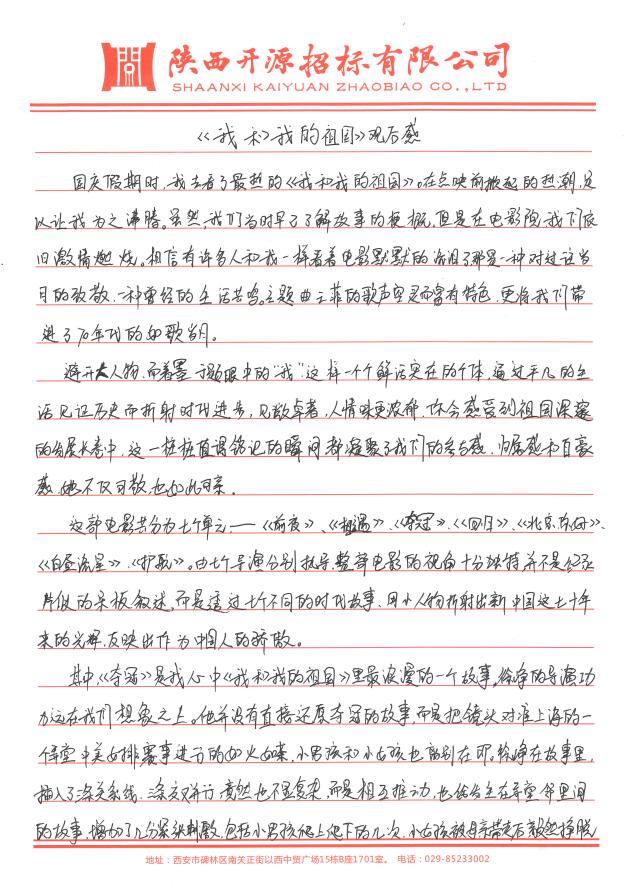 陕西开源招标有限公司
SHAANXI KAIYUAN ZHAOBIAO CO.,LTD
《我和我的祖国》观后感
国庆假期时,我去看了最热的《我和我的祖国》。在点映前掀起的热潮,足
以让我为之沸腾。虽然,我们当时早早了解故事的梗概,但是在电影院,我们依
旧激情燃烧。相信有许多人和我一样看着电影默默的流泪了那是一种对过往岁
月的致敬,一种曾经的生活共鸣。主题曲王菲的歌声空灵而富有特色,更将我们带
进了70年代的如歌岁月。
避开大人物,而着墨于微眼中的“我”这样一个个鲜活实在的个体,通过平凡的生
活见证历史而折射时代进步,见微卓著,人情味更浓郁,你会感受到祖国深邃
的发展长卷中,这一桩桩值得铭记的瞬间都凝聚了我们的参与感、归属感和自豪
感,她不仅可敬,也如此可亲。
这部电影共分为七个单元,——《前夜》、《相遇》、《夺冠》、《回归》、《北京你好》、
《白昼流星》、《护航》。由七个导演分别执导,整部电影的视角十分独特,并不是纪录
片似的呆板叙述,而是透过七个不同的时代故事、用小人物折射出新中国这七十年
来的光辉,反映出作为中国人的骄傲。
其中,《夺冠》是我心中《我和我的祖国》里最浪漫的一个故事。徐峥的导演功
力远在我们想象之上。他并没有直接还原夺冠的故事,而是把镜头对准上海的一
个弄堂中美女排赛事进行的如火如荼,小男孩和小女孩也离别在即。徐峥在故事里,
插入了条关系线、条文并行竟然也不显复杂,而是相互推动,也给发生在弄堂邻里间
的故事,增加了几分紧张刺激,包括小男孩爬上爬下的几次,小女孩被母亲带走后毅然挣脱
地址:西安市碑林区南关正街以西中贸广场15栋B座1701室。 电话:029-85233002